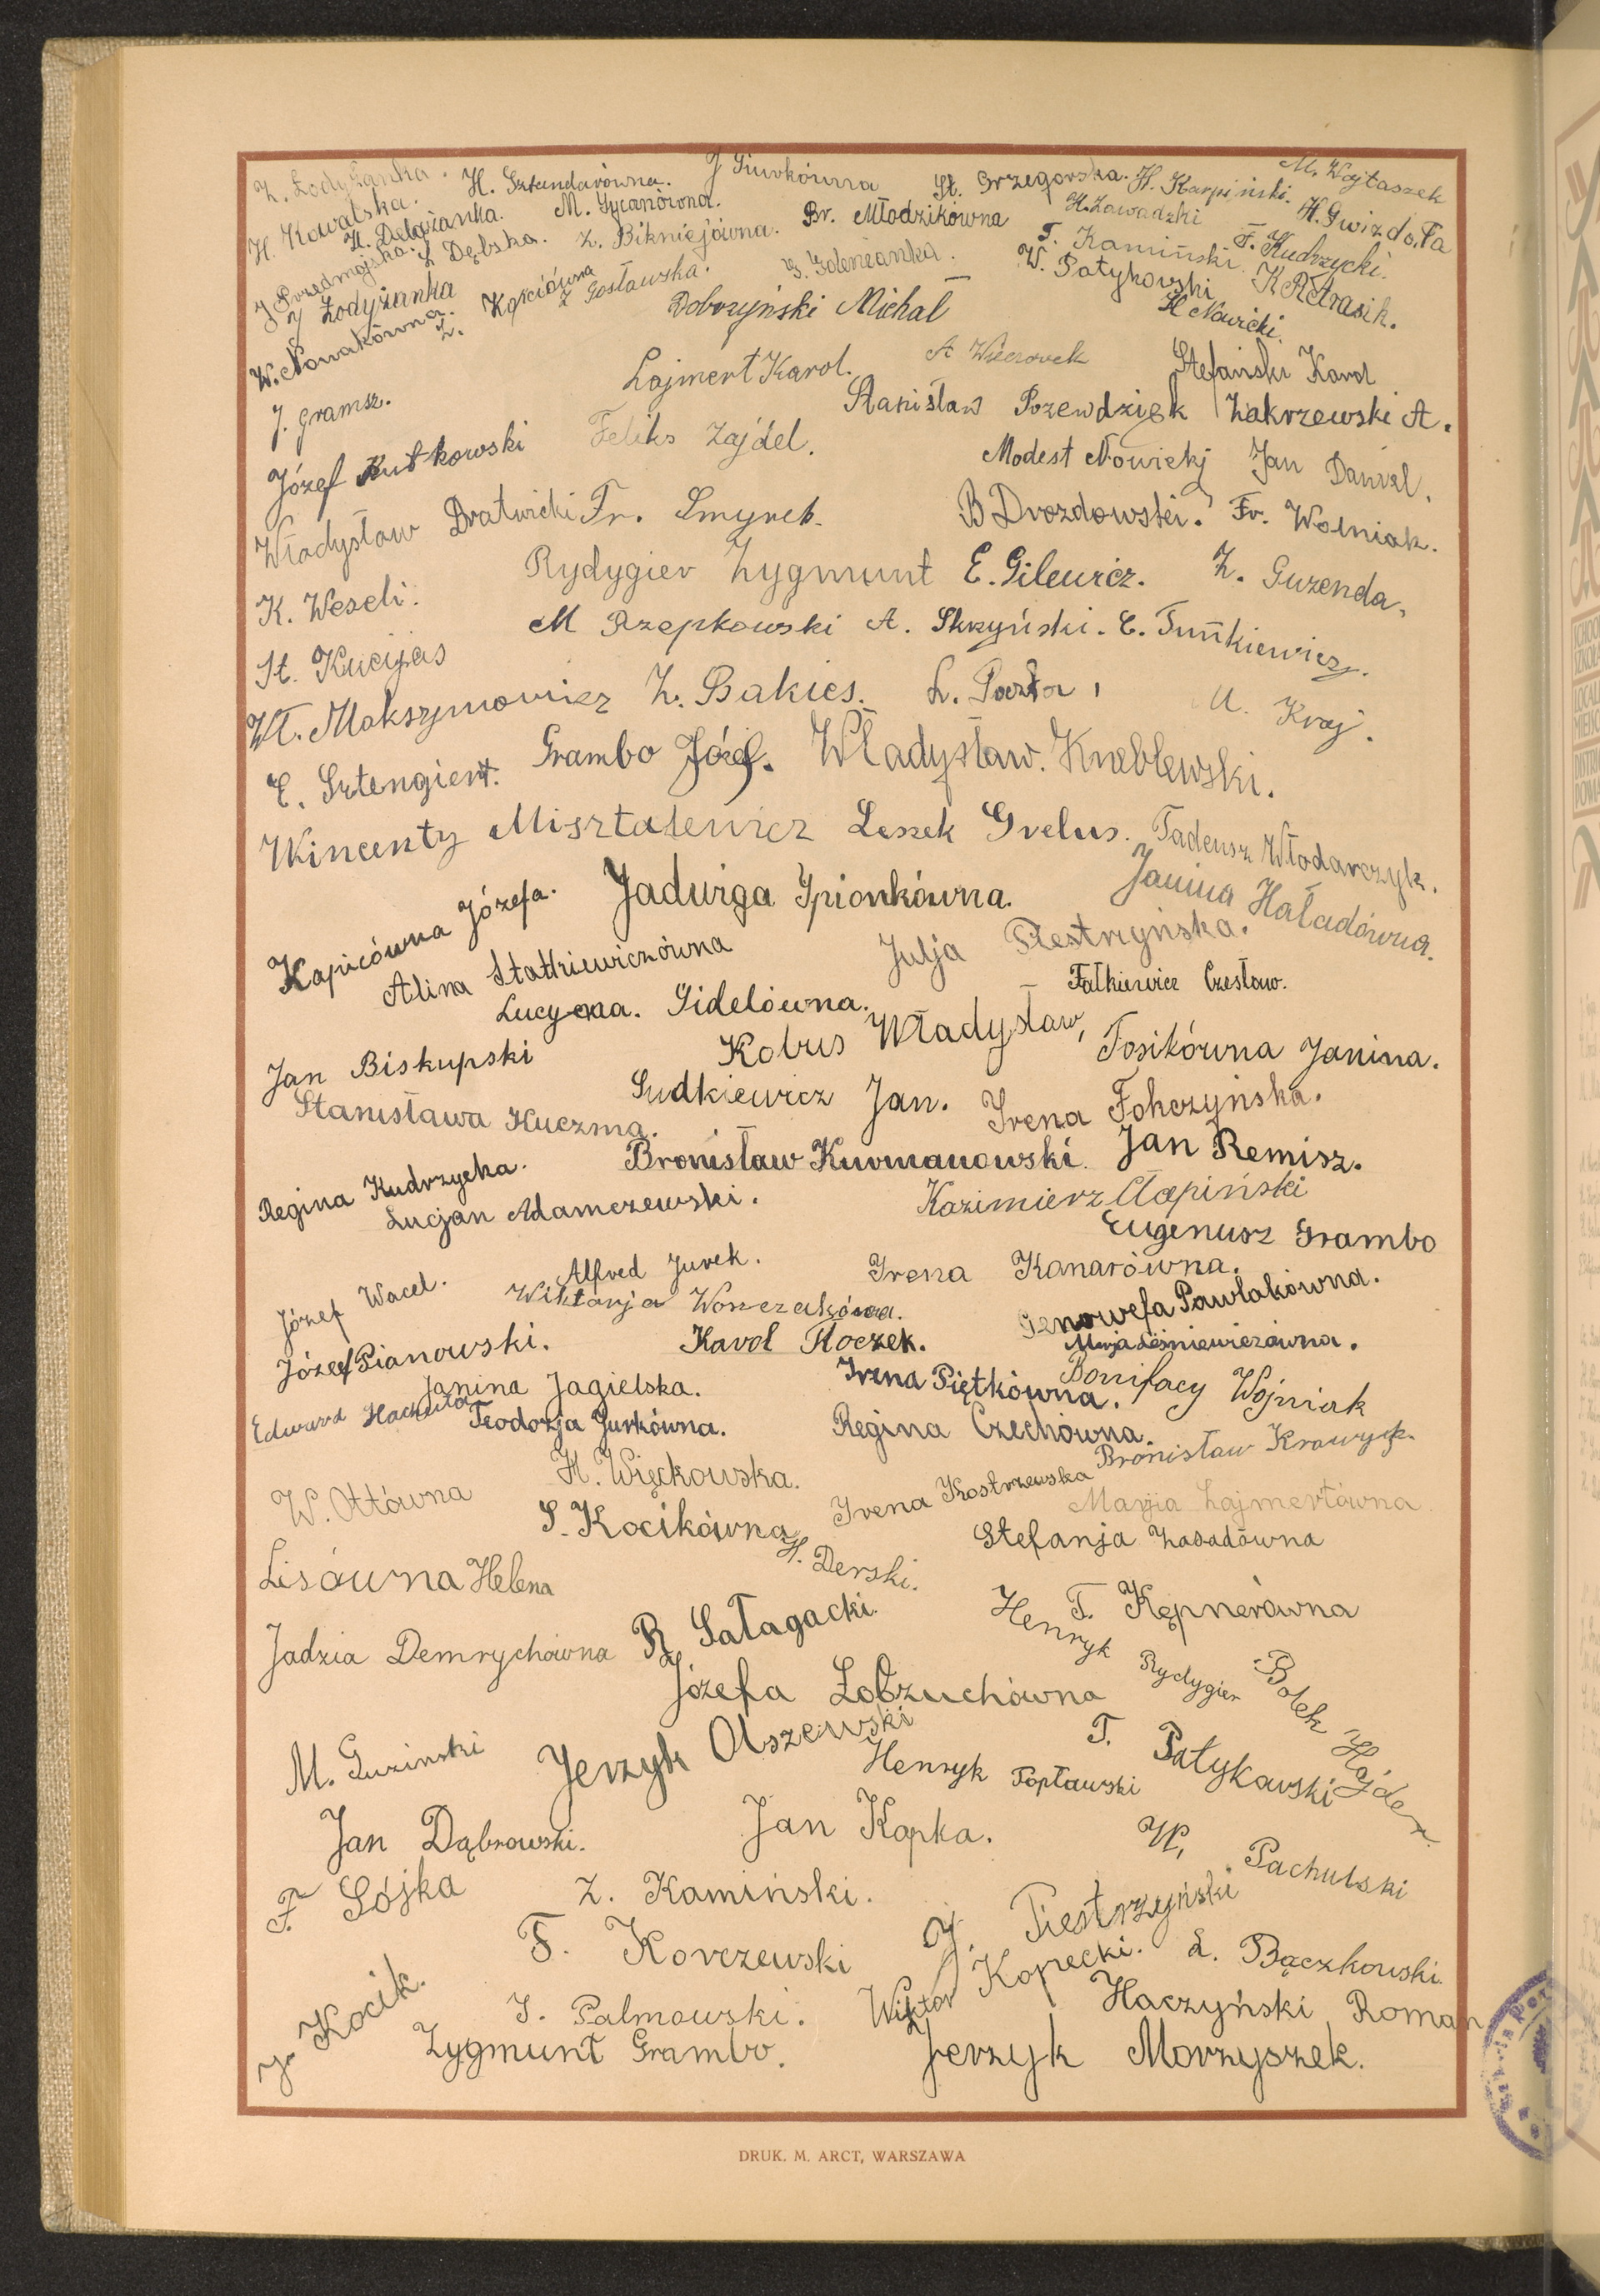 Z. Łodyżanka. H. Sztandarówna. J Siwkówna St. Grzegorska. H. Karpiński. M. Wojtaszek
H. Kowalska. H. Delążanka. M. Sycanówna. Br. Młodzikówna H. Zawadzki H. Gwizdała
J Przedmojska. L Dębska. Z. Bikniejówna. T. Kamiński. F. Kudrzycki.
Y Łodyżanka Z. Kościówna Z Gosławska. G. Golenianka. W. Patykowski K Pietrasik.
W. Nowakówna. Dobrzyński Michał H Nawicki.
J. Gramsz. Lajmert Karol. A Wieczorek Stefański Karol
Józef Rutkowski Feliks Zajdel. Stanisław Pozewdzięk Zakrzewski A.
Władysław Dratwicki Fr. Smyrek. Modest Nowickj Jan Daniel.
B Drozdowski. Fr. Wolniak.
K. Weseli. Rydygier Zygmunt E. Gilewicz. Z. Guzenda.
St. Kucijas M Rzepkowski A. Skrzyński. E. Tuńkiewicz.
Wł. Maksymowicz Z. Bakies. L. Poczta, U. Kraj.
E. Sztengiert. Grambo Józef. Władysław. Kneblewski.
Wincenty Misztalewicz Leszek Grelus. Tadeusz Włodarczyk.
Kapicówna Józefa. Jadwiga Spionkówna. Janina Haładówna.
Alina Statkiewiczówna Julja Piestrzyńska.
Lucyna. Sidelówna. Fałkiewicz Czesław.
Jan Biskupski Kobus Władysław, Tosikówna Janina.
Stanisława Kuczma. Sudkiewicz Jan. Irena Tohczyńska.
Regina Kudrzycka. Bronisław Kurmanowski. Jan Remisz.
Lucjan Adamczewski. Kazimierz Cłapiński
Eugenusz Grambo
Józef Wacel. Alfred Jurek. Irena Kanarówna.
Wiktorja Wonczakówna. Genowefa Pawlakówna.
Józef Pianowski. Karol Kloczek. Marja Leśniewiczówna.
Janina Jagielska. Irena Piętkówna. Bonifacy Wojniak
Edward Hackuta Teodozja Jurkówna. Regina Czechówna.
W. Ottówna H. Więckowska. Irena Kostrzewska Bronisław Krawczyk.
S. Kocikówna Marjia Lajmertówna.
Lisówna Helena H. Derski. Stefanja Zasadówna
Jadzia Demrychówna R. Sałagacki. Henryk Rydygier T. Kępnerówna
Józefa Łobzuchówna Bolek Hajder.
M. Guzinski Jerzyk Olszewski Henryk Popławski T. Patykowski
Jan Dąbrowski. Jan Kapka. W. Pachulski
F. Sójka Z. Kamiński. J. Piestrzyński
J. Kocik. F. Korczewski Wiktor Kopecki. L. Bączkowski.
J. Palmowski. Haczyński Roman
Zygmunt Grambo. Jerzyk Morzyszek.
DRUK. M. ARCT, WARSZAWA